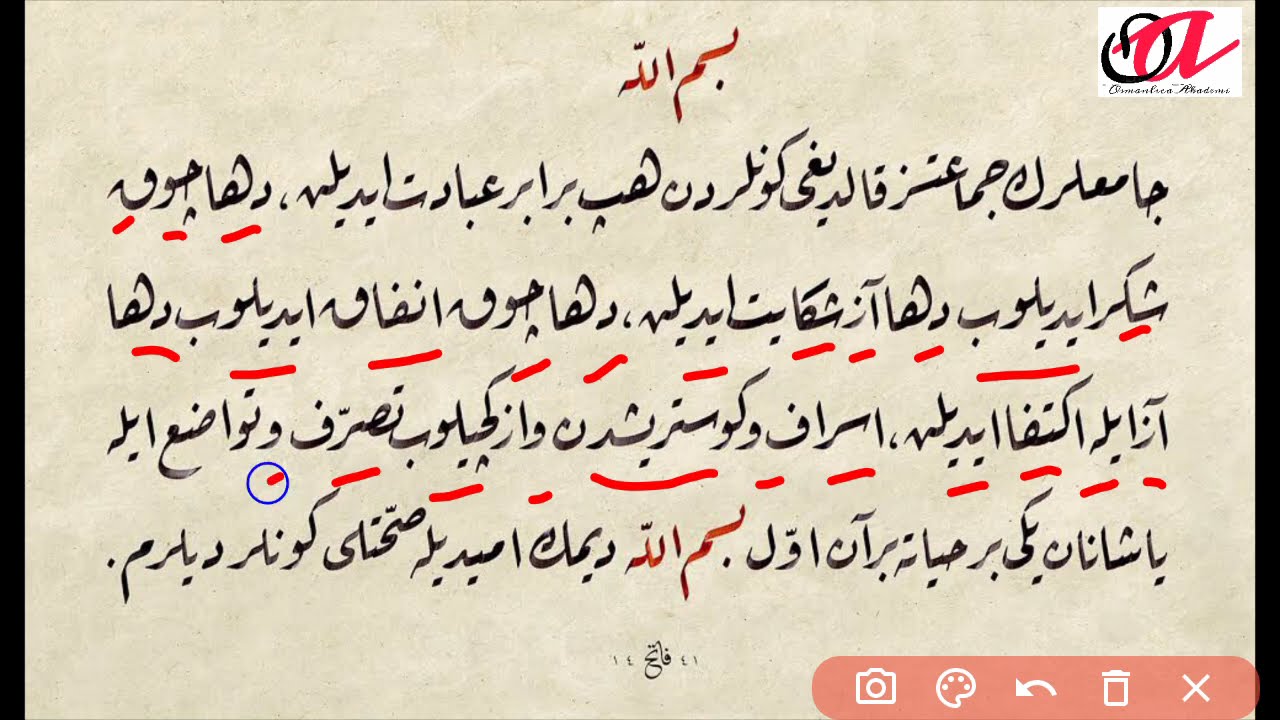 بسم الله
جامعلرڭ جماعتسز قالديغی كونلردن هپ برابر عبادت ايديلن، دها چوق
شكر ايديلوب دها آز شكايت ايديلن، دها چوق انفاق ايديلوب دها
آز ايله اكتفا ايديلن، اسراف و كوستريشدن واز كچيلوب تصرّف و تواضع ايله
ياشانان يكی بر حياته بر آن اوّل بسم الله ديمك اميديله صحّتلی كونلر ديلرم.
١٤ فاتح ٤١
Osmanlıca Akademi